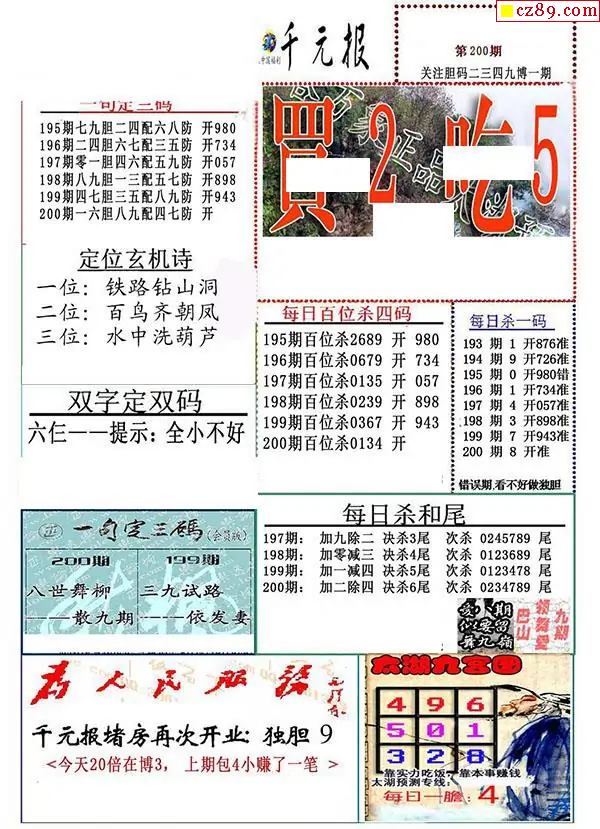 cz89.com
千元报
第200期
关注胆码二三四九博一期
一句定三码
195期七九胆二四配六八防 开980
196期二四胆六七配三五防 开734
197期零一胆四六配五九防 开057
198期八九胆一三配五七防 开898
199期四七胆三五配八九防 开943
200期一六胆八九配四七防 开
買 2 吃 5
定位玄机诗
一位: 铁路钻山洞
二位: 百鸟齐朝凤
三位: 水中洗葫芦
每日百位杀四码
195期百位杀2689 开 980
196期百位杀0679 开 734
197期百位杀0135 开 057
198期百位杀0239 开 898
199期百位杀0367 开 943
200期百位杀0134 开
每日杀一码
193 期 1 开876准
194 期 9 开726准
195 期 0 开980错
196 期 1 开734准
197 期 4 开057准
198 期 3 开898准
199 期 7 开943准
200 期 8 开准
错误期,看不好做独胆
双字定双码
六仨——提示: 全小不好
每日杀和尾
197期: 加九除二 决杀3尾 次杀 0245789 尾
198期: 加零减三 决杀4尾 次杀 0123689 尾
199期: 加一减四 决杀5尾 次杀 0123478 尾
200期: 加二除四 决杀6尾 次杀 0234789 尾
一句定三碼(会员版)
200期 199期
八世舞柳 三九试路
——散九期 ——依发妻
为人民服务
千元报堵房再次开业: 独胆 9
<今天20倍在博3, 上期包4小赚了一笔 >
太湖九宫图
4 9 6
5 0 1
3 2 8
靠实力吃饭, 靠本事赚钱
太湖预测专线:
每日一胆: 4